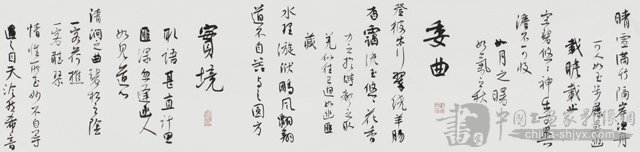 晴雪滿竹隔溪漁舟
可人如玉步屧尋幽
載瞻載止
空碧悠悠神出古異
淡不可收
如月之曙
如氣之秋
委曲
登彼太行翠繞羊腸
杳靄流玉悠悠花香
力之於時聲之於
羌似往已迴如幽匪
藏
水理漩洑鵬風翱翔
道不自器與之圓方
實境
取語甚直計思
匪深忽逢幽人
如見道心
清澗之曲碧松之陰
一客荷樵
一客聽琴
情性所至妙不自尋
遇之自天泠然希音